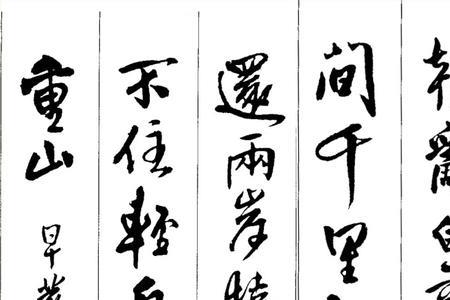 朝辭白
間千里
還兩岸猿
不住輕舟
重山
早發